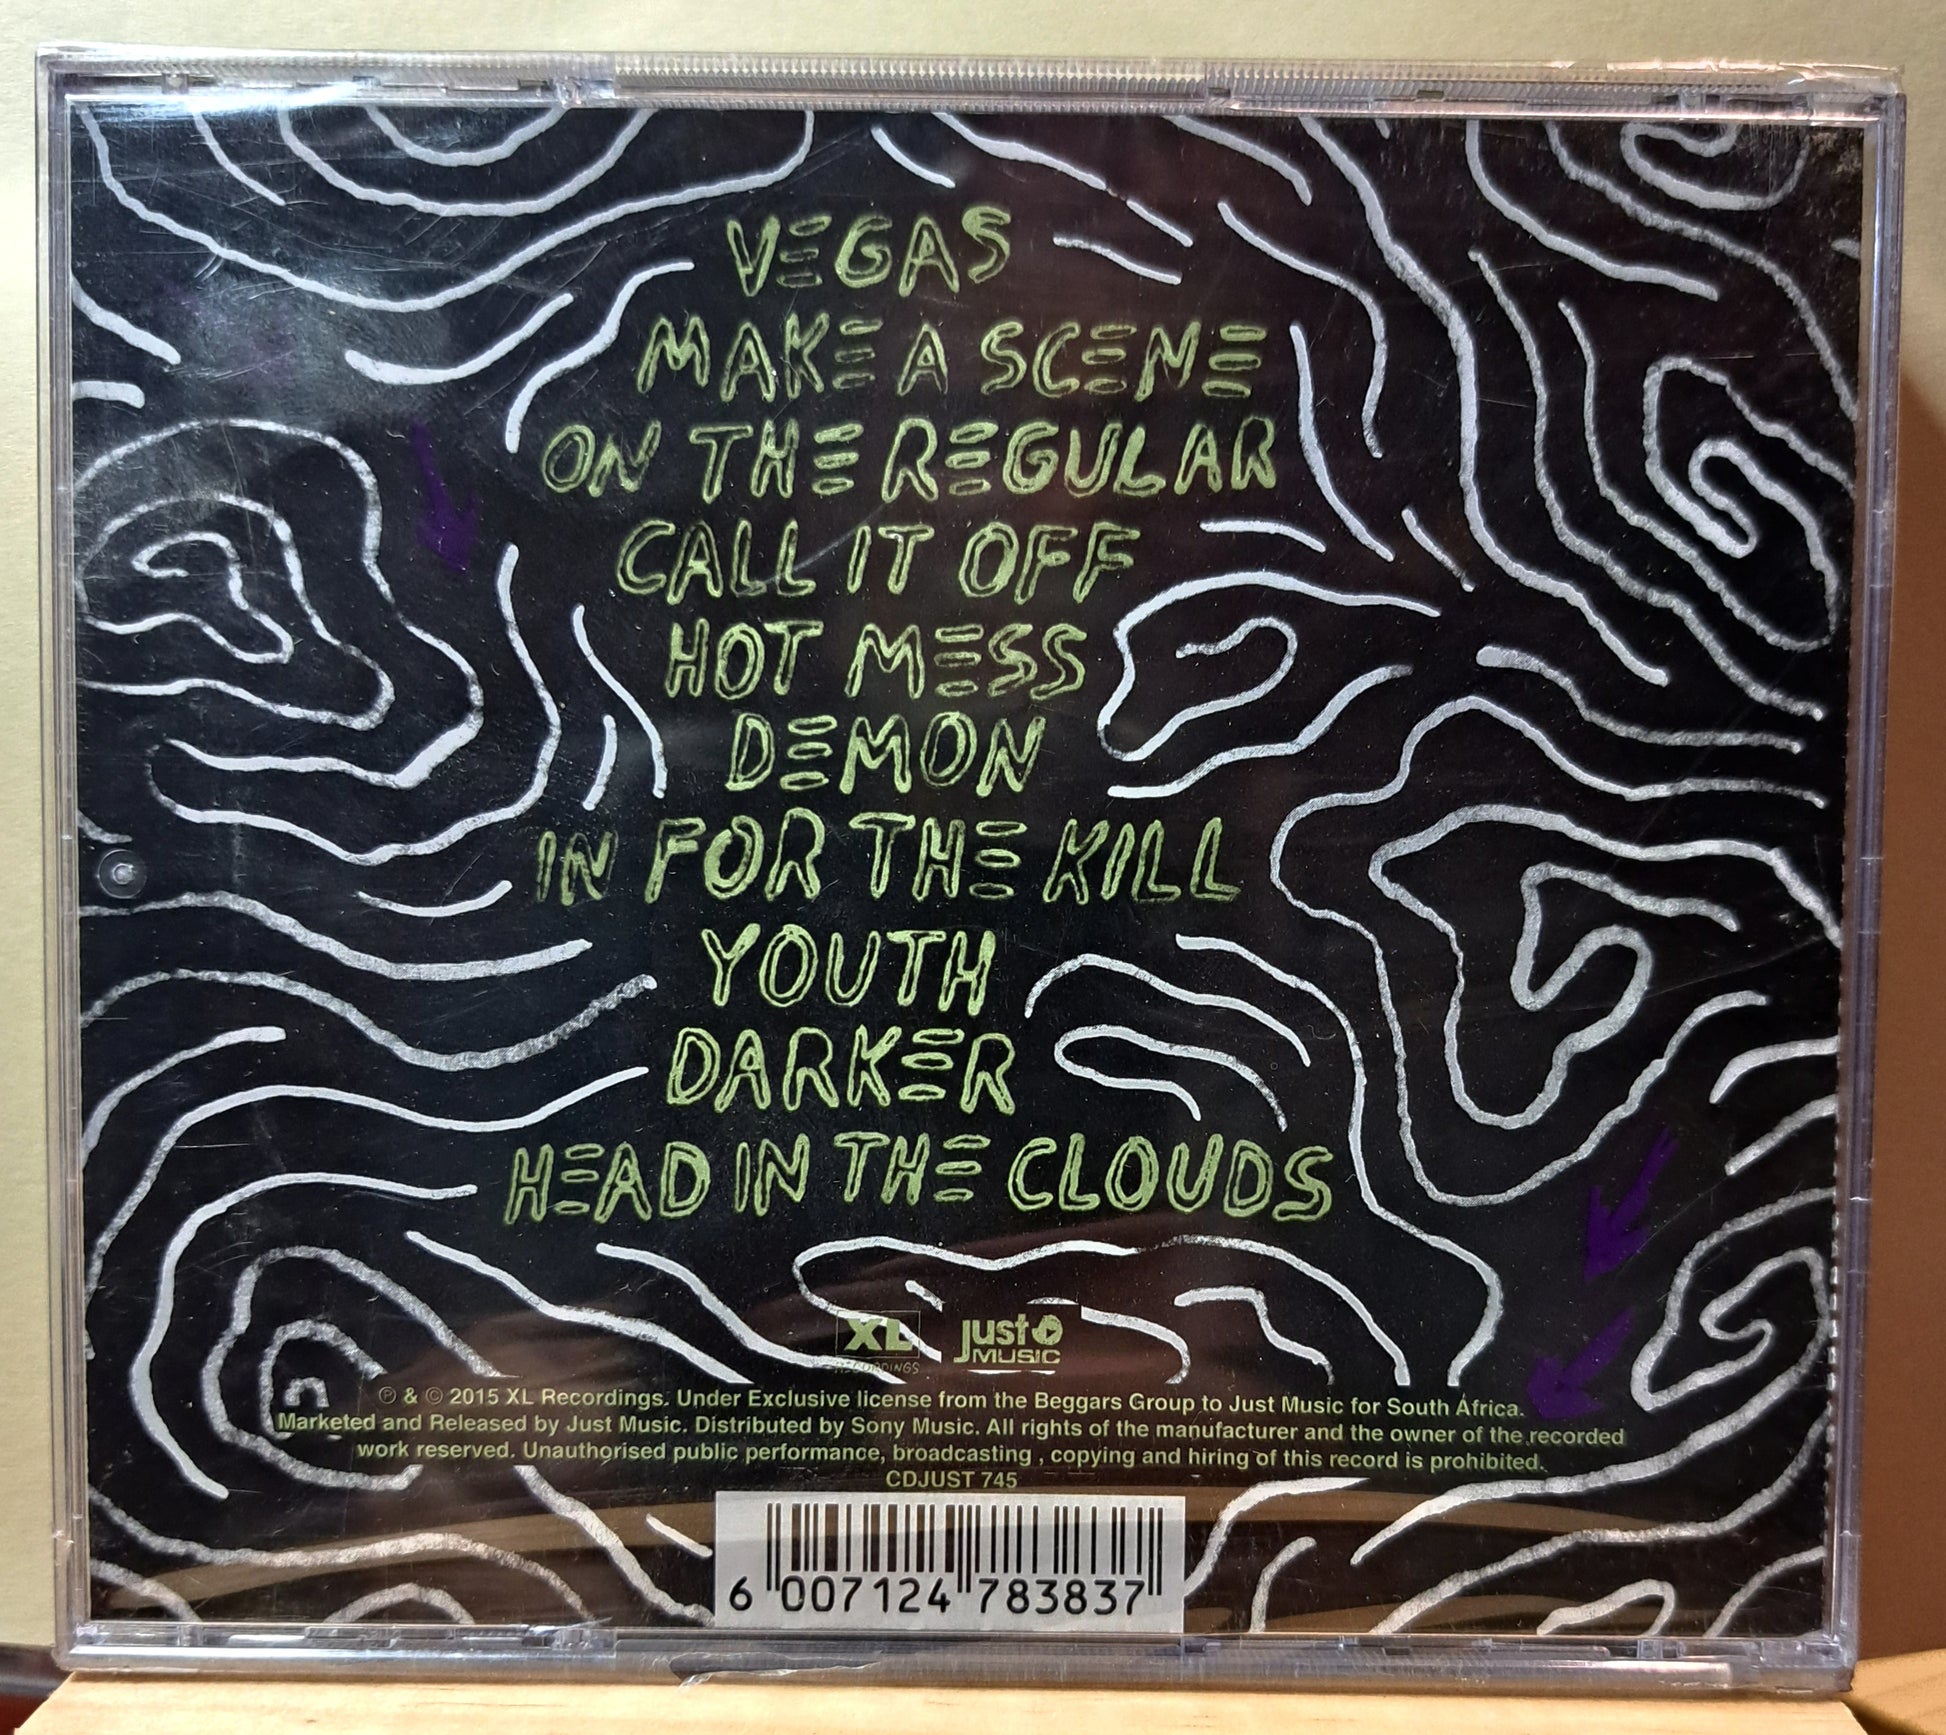 VEGAS
MAKE A SCENE
ON THE REGULAR
CALL IT OFF
HOT MESS
DEMON
IN FOR THE KILL
YOUTH
DARKER
HEAD IN THE CLOUDS
XL just
RECORDINGS MUSIC
℗ & © 2015 XL Recordings. Under Exclusive license from the Beggars Group to Just Music for South Africa.
Marketed and Released by Just Music. Distributed by Sony Music. All rights of the manufacturer and the owner of the recorded
work reserved. Unauthorised public performance, broadcasting , copying and hiring of this record is prohibited.
CDJUST 745
6 007124 783837